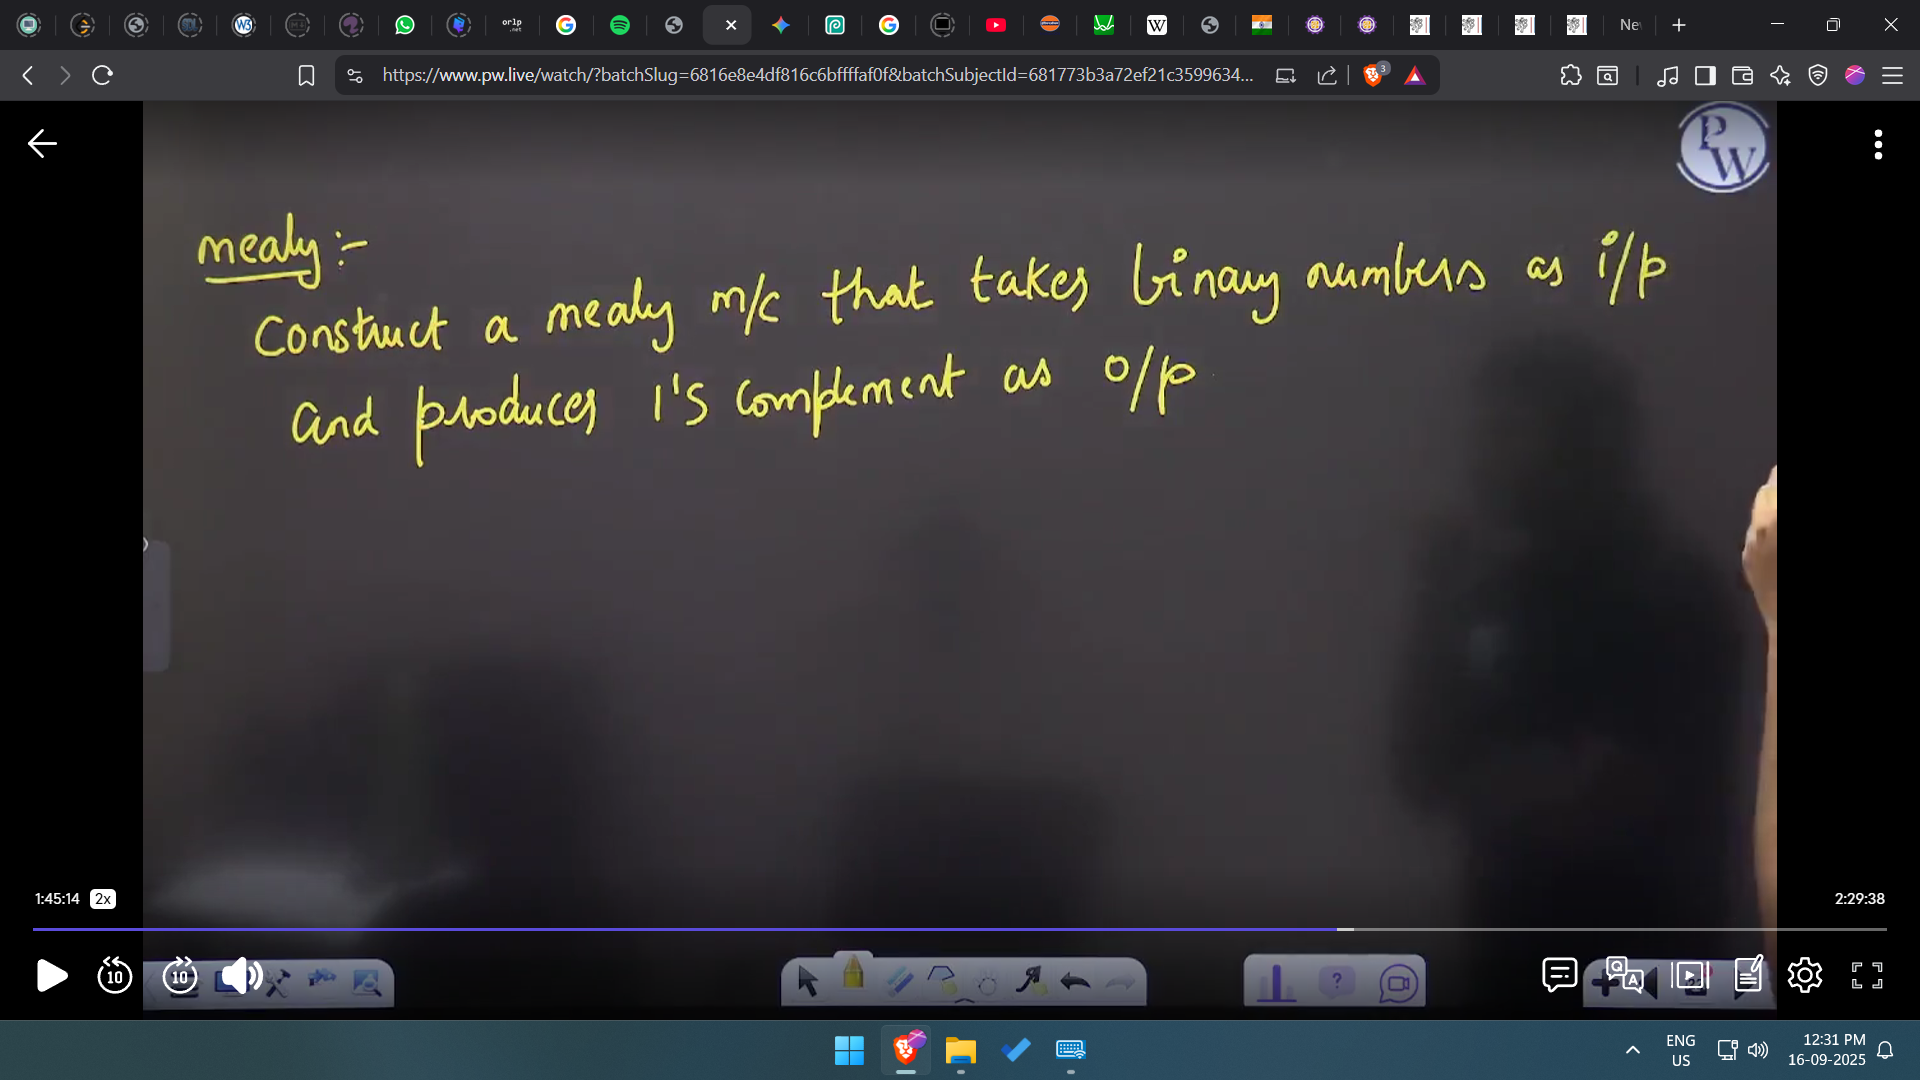 orlp
.net
Ne
https://www.pw.live/watch/?batchSlug=6816e8e4df816c6bffffaf0f&batchSubjectId=681773b3a72ef21c3599634...
3
PW
mealy :-
Construct a mealy m/c that takes binary numbers as i/p
and produces 1's complement as o/p
1:45:14 2x
2:29:38
10 10
ENG
US
12:31 PM
16-09-2025